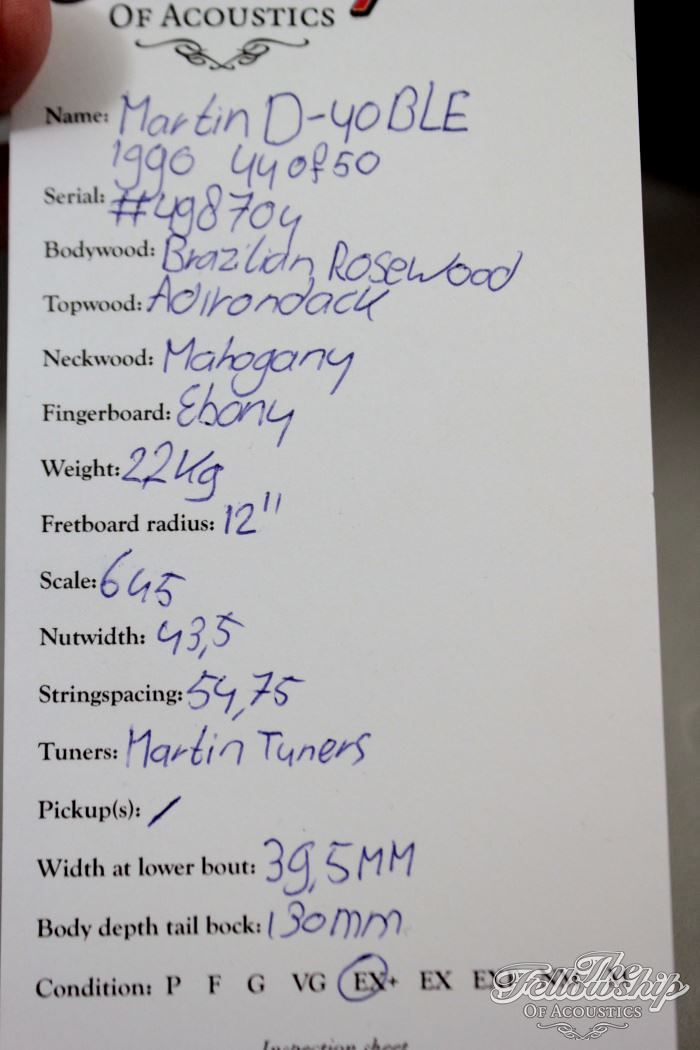 OF ACOUSTICS
Name: Martin D-40BLE
1990 44 of 50
Serial: #498704
Bodywood: Brazilian Rosewood
Topwood: Adirondack
Neckwood: Mahogany
Fingerboard: Ebony
Weight: 2,2Kg
Fretboard radius: 12"
Scale: 645
Nutwidth: 43,5
Stringspacing: 54,75
Tuners: Martin Tuners
Pickup(s): /
Width at lower bout: 39,5MM
Body depth tail bock: 130mm
Condition: P F G VG EX+ EX
The
Fellowship
OF ACOUSTICS
Inspection sheet